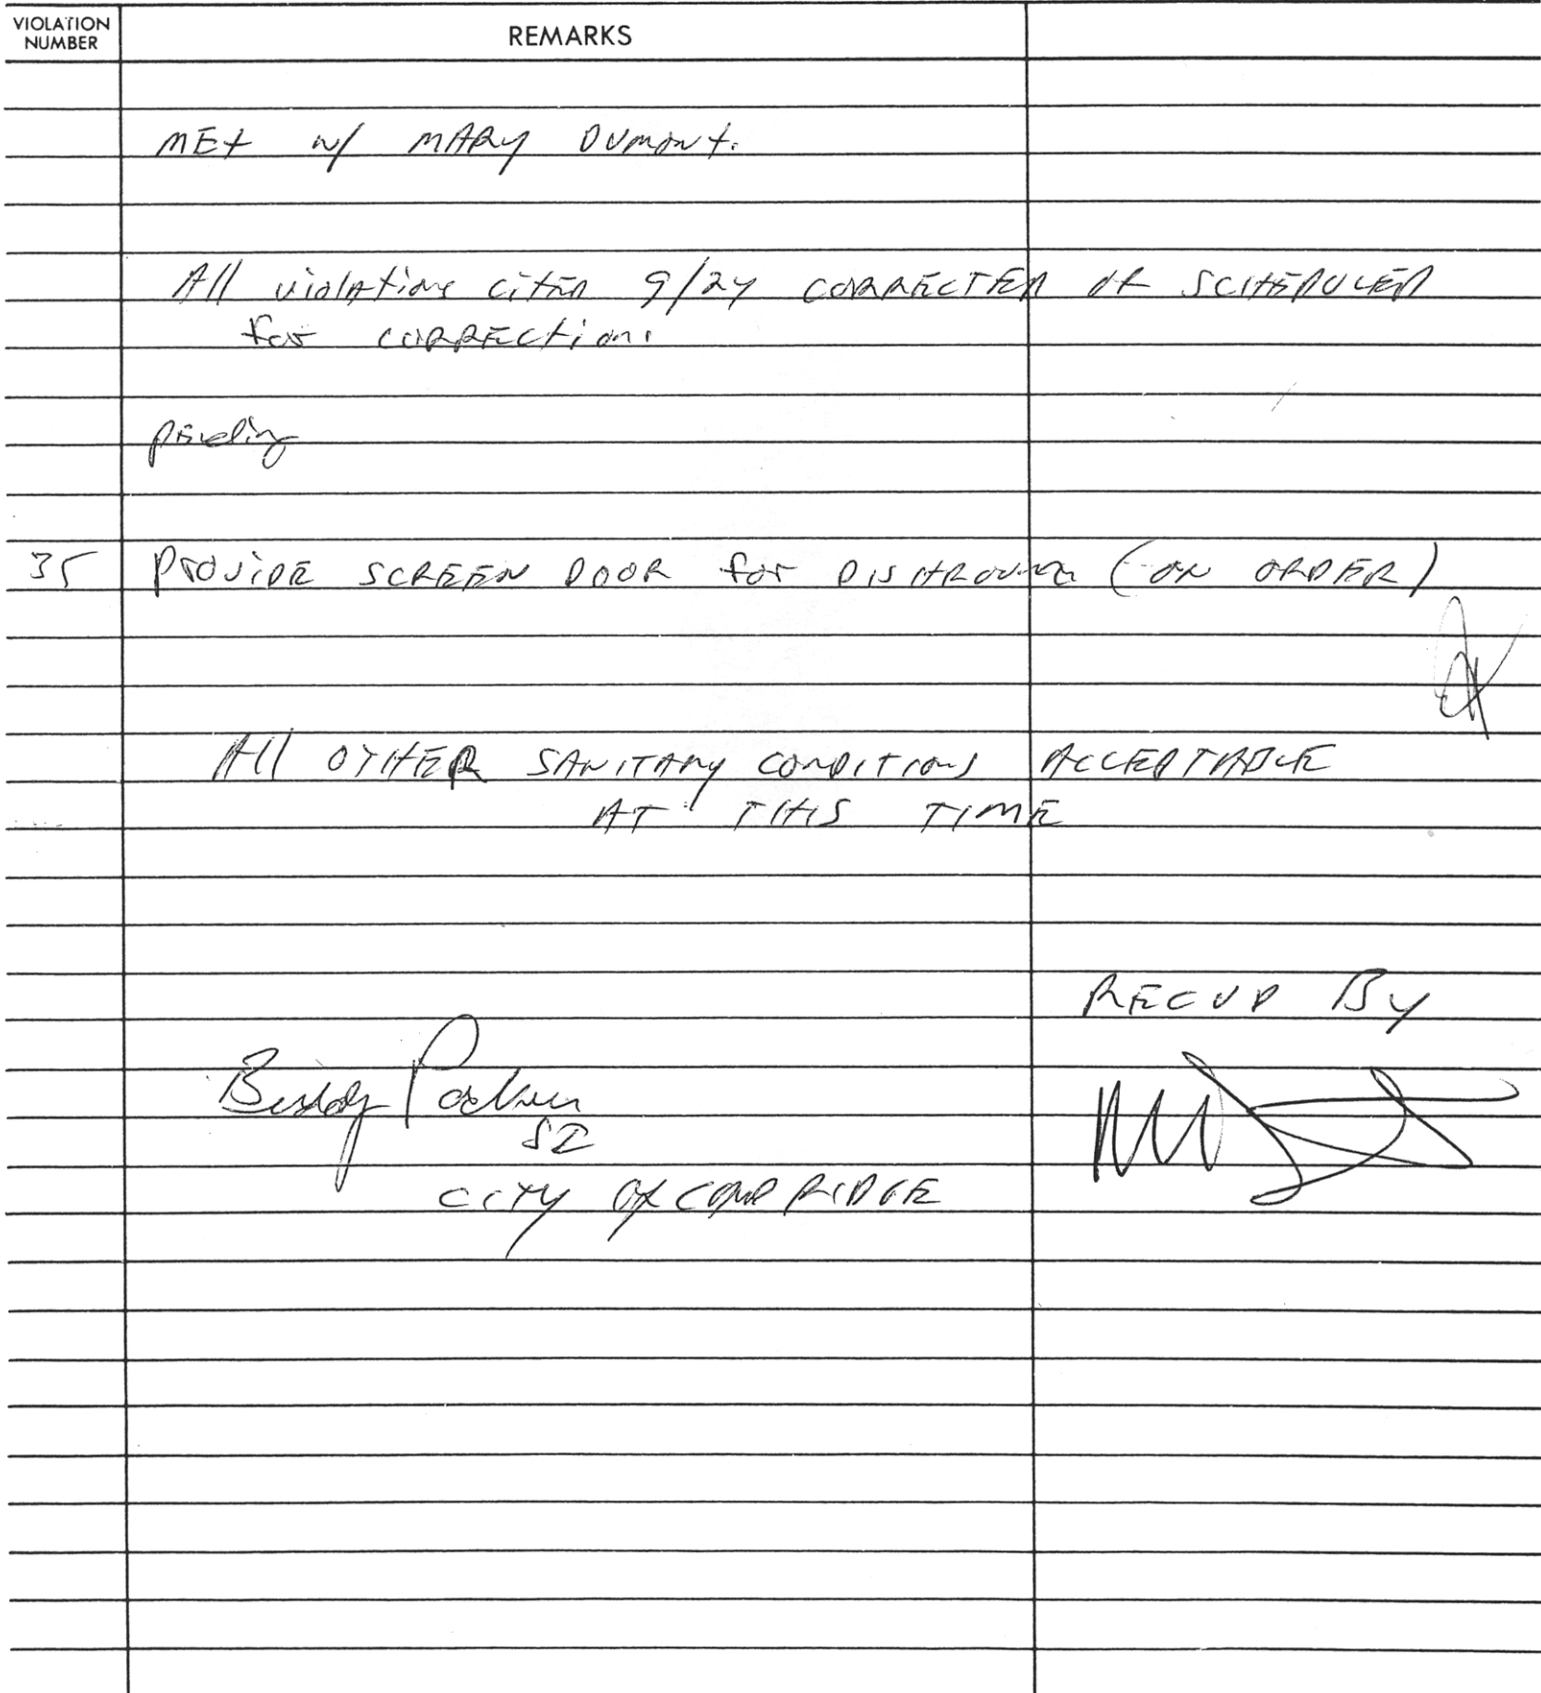 VIOLATION NUMBER
REMARKS
MEt w/ MARY DUMONT.
All violations citED 9/24 CORRECTED or SCHEDULED
for CORRECtion.
pending
35 PROVIDE SCREEN DOOR for DISHROOM (ON ORDER)
All OTHER SANITARY CONDITIONS ACCEPTABLE
AT THIS TIME
RECVD By
SI
CITY OF CAMBRIDGE